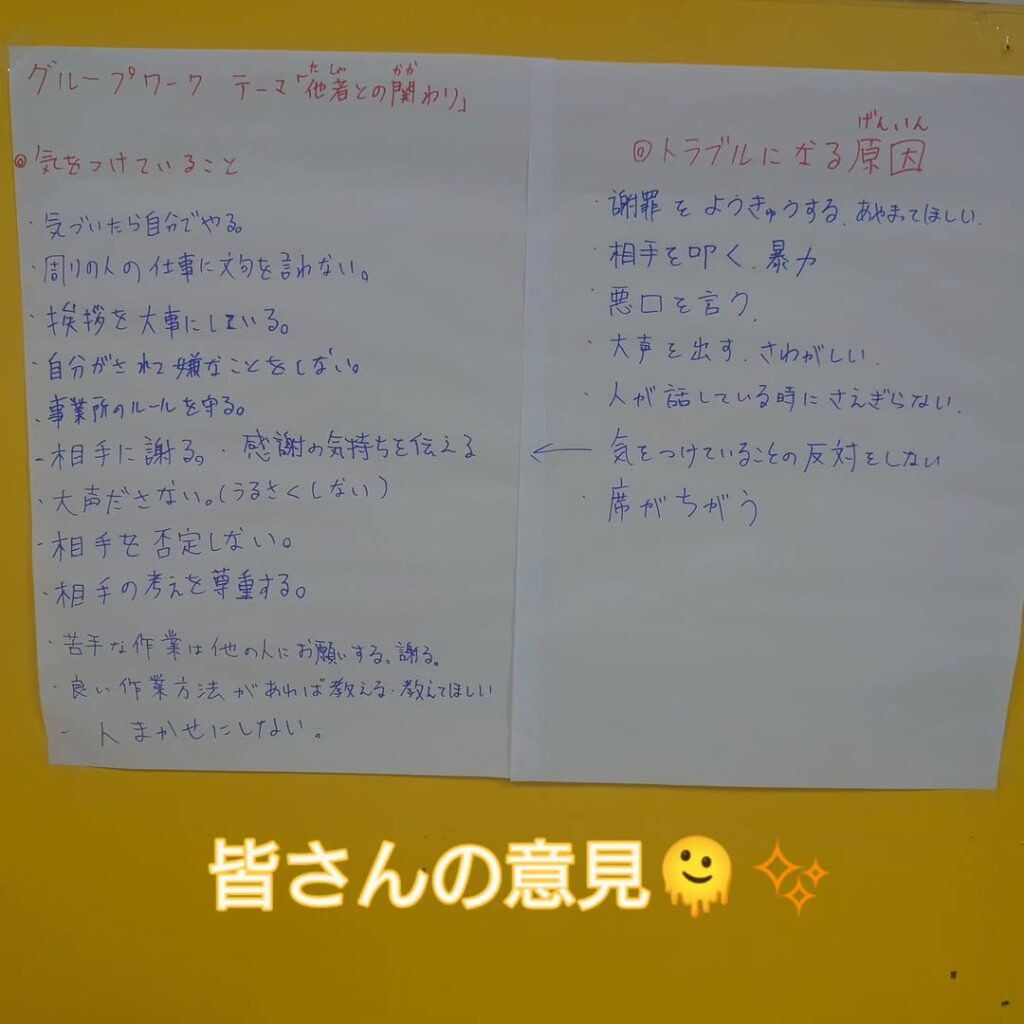 グループワーク テーマ「他者との関わり」
たしゃ かか
◎気をつけていること
・気づいたら自分でやる。
・周りの人の仕事に文句を言わない。
・挨拶を大事にしている。
・自分がされて嫌なことをしない。
・事業所のルールを守る。
・相手に謝る。・感謝の気持ちを伝える
・大声ださない。(うるさくしない)
・相手を否定しない。
・相手の考えを尊重する。
・苦手な作業は他の人にお願いする。謝る。
・良い作業方法があれば教える・教えてほしい
・人まかせにしない。
げんいん
◎トラブルになる原因
・謝罪をようきゅうする、あやまってほしい、
・相手を叩く、暴力
・悪口を言う、
・大声を出す、さわがしい、
・人が話している時にさえぎらない、
← 気をつけていることの反対をしない
・席がちがう
皆さんの意見🫠✨